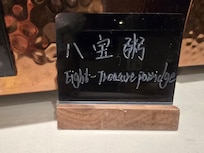 八宝粥
Eight-Treasure porridge